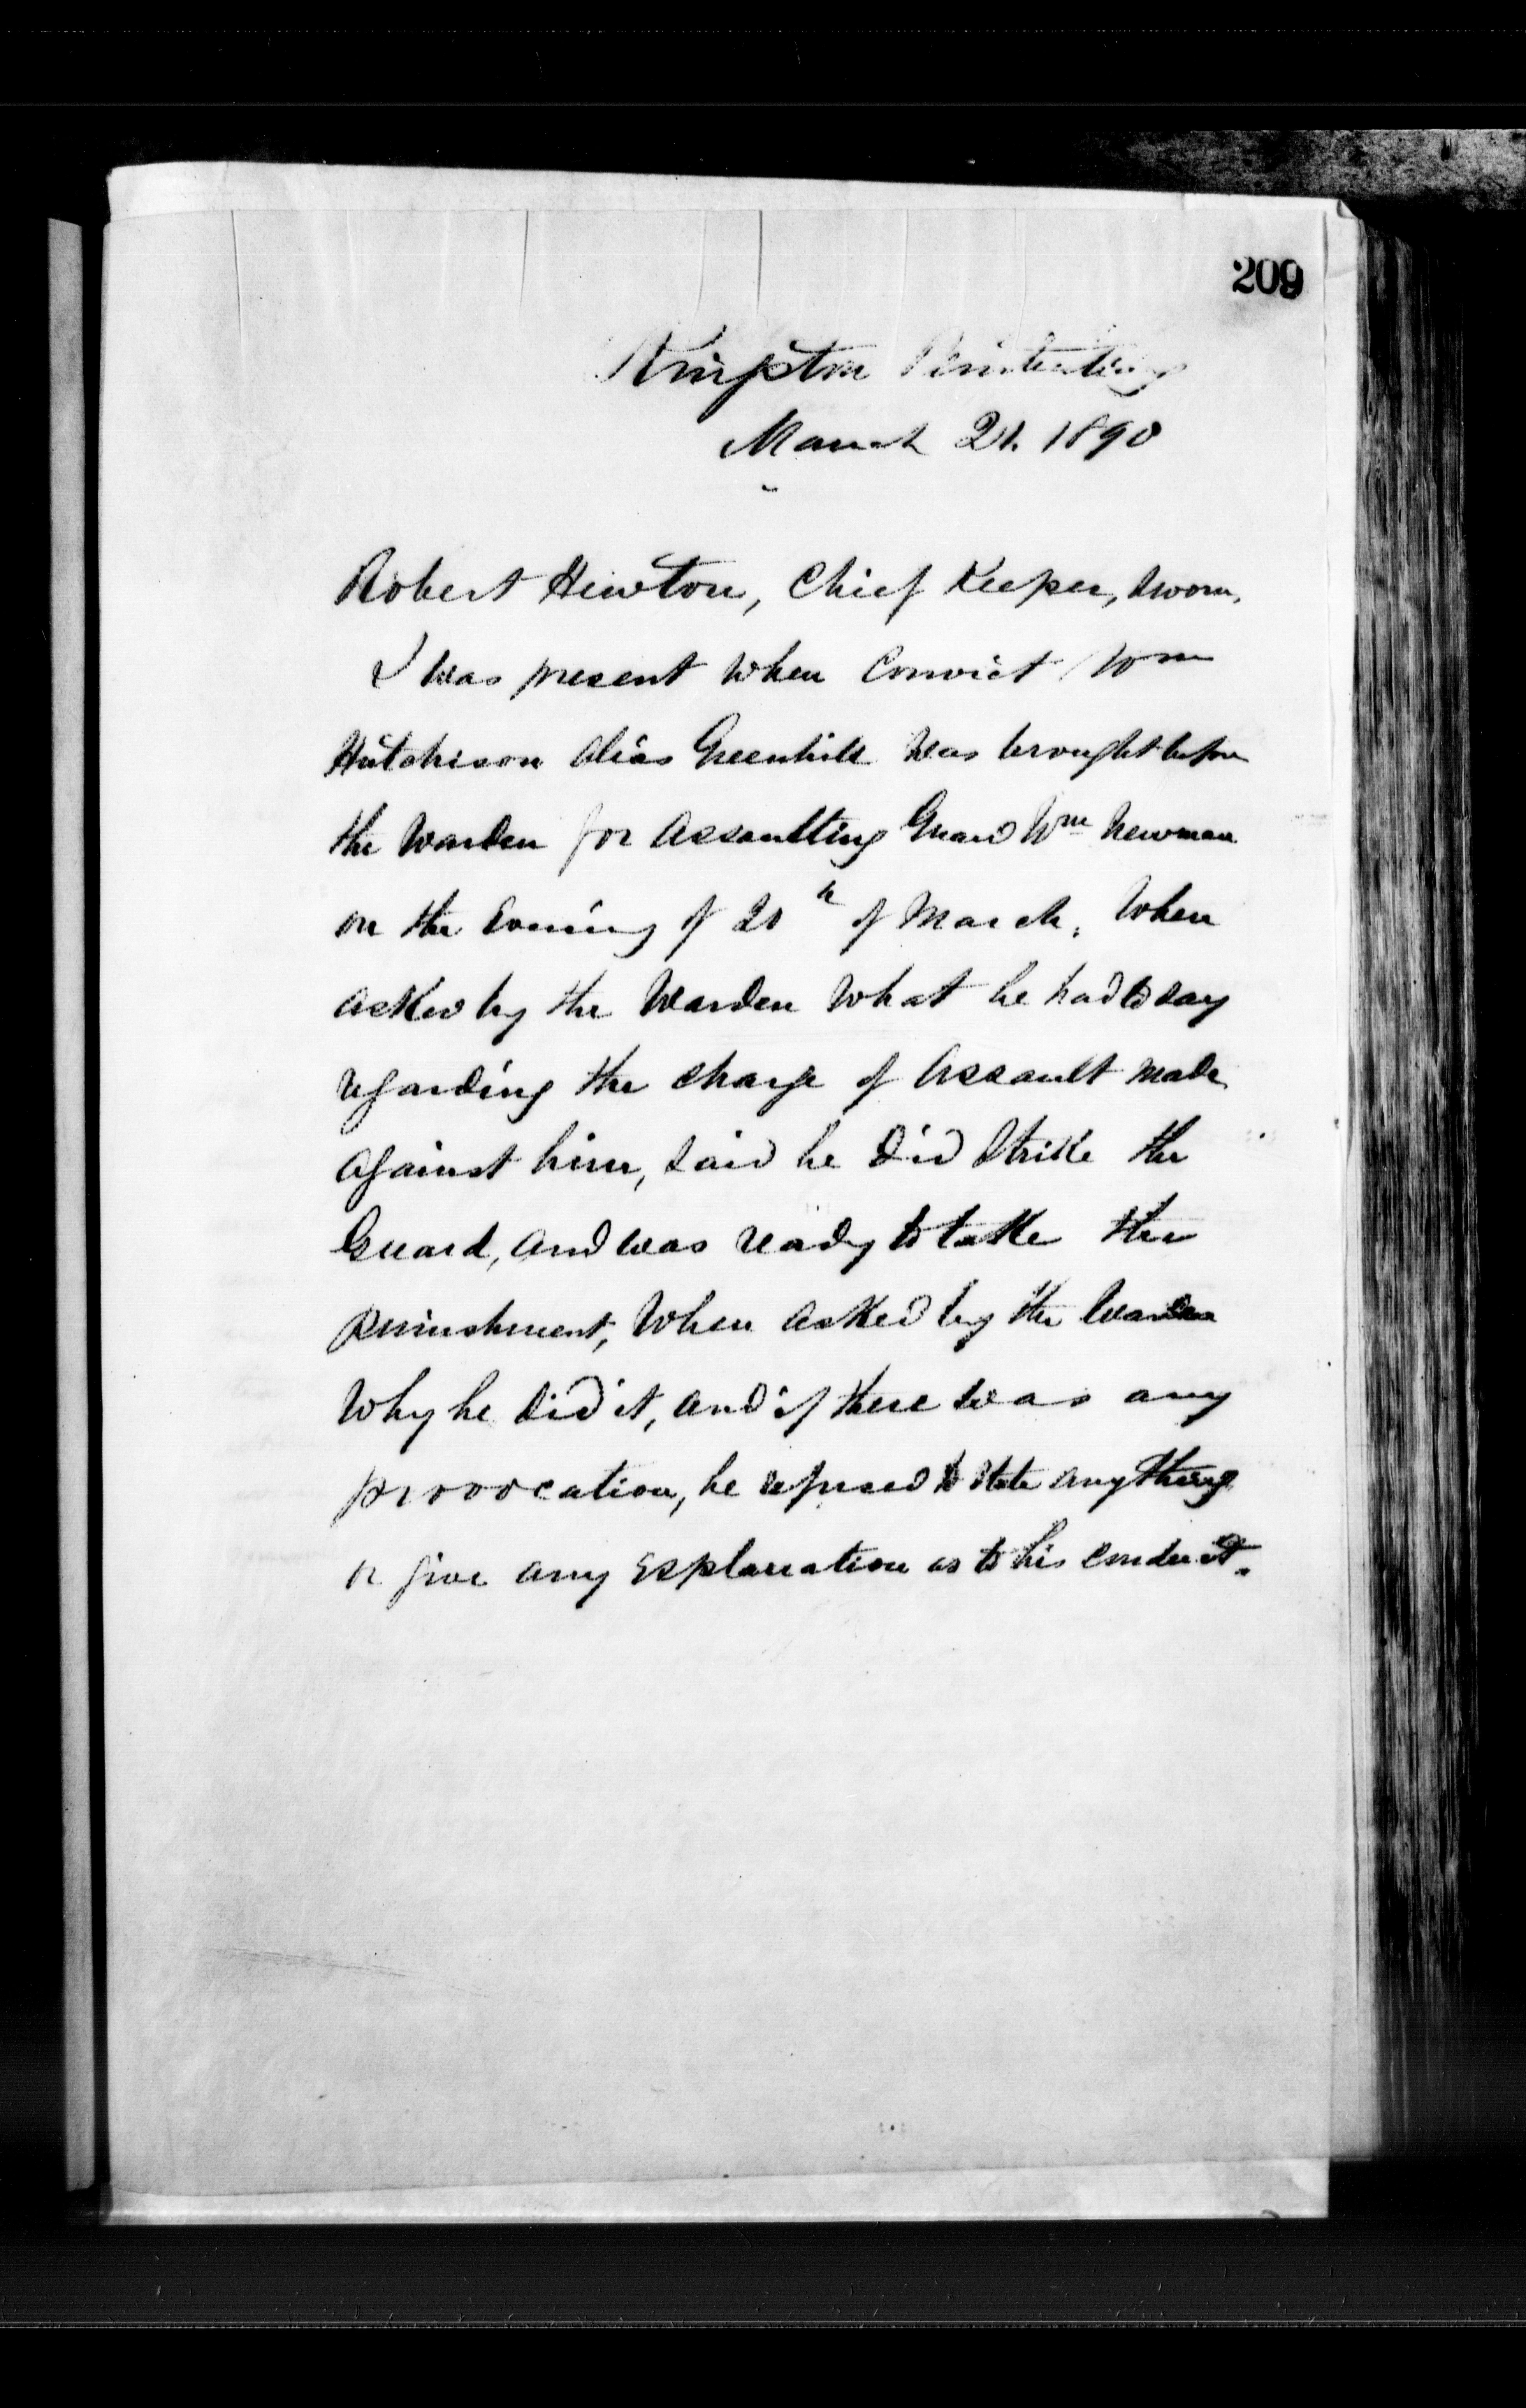 209
Kingston Penitentiary
March 21. 1890
Robert Hewton, Chief Keeper, sworn,
I was present when Convict Wm
Hutchison alias Greenhill was brought before
the Warden for assaulting Guard Wm Newman
on the Evening of 20th of March. When
asked by the Warden what he had to say
regarding the charge of Assault made
against him, said he did Strike the
Guard, and was ready to take the
Punishment, When asked by the Warden
Why he did it, and if there was any
provocation, he refused to state anything
or give any Explanation as to his conduct.